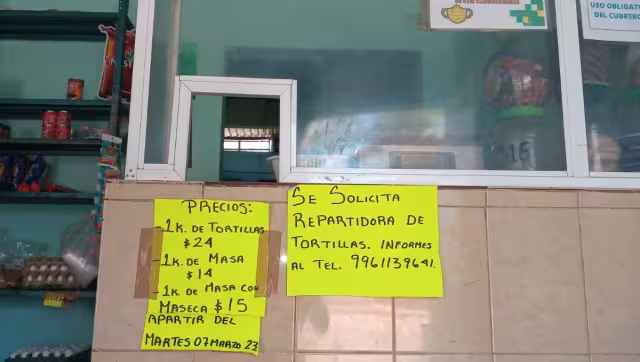 USO OBLIGAT
DEL CUBREBO
PRECIOS:
-1K. DE TORTILLAS
$24
-1K. DE MASA
$14
-1K. DE MASA CON
MASECA $15
APARTIR DEL
MARTES 07 MARZO 23
SE SOLICITA
REPARTIDORA DE
TORTILLAS. INFORMES
AL TEL. 9961139641.